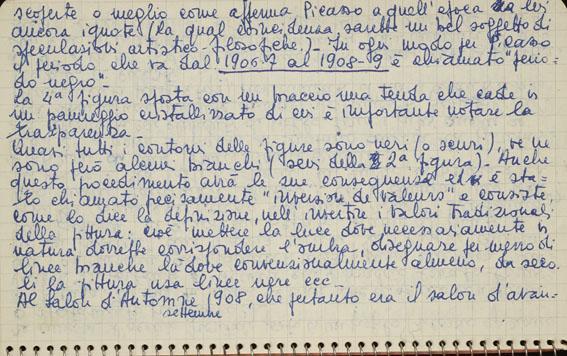 scoperte o meglio come afferma Picasso a quell'epoca da lui
ancora ignote (la qual coincidenza, sarebbe un bel soggetto di
speculazioni artistico-filosofiche.)- In ogni modo per Picasso
il periodo che va dal 1906-7 al 1908-9 è chiamato "perio-
do negro"-
La 4a figura sposta con un braccio una tenda che cade in
un panneggio cristallizzato di cui è importante notare la
trasparenza-
Quasi tutti i contorni delle figure sono neri (o scuri), ve ne
sono però alcuni bianchi (seni della 2a figura)- Anche
questo procedimento avrà le sue conseguenze ed è sta-
to chiamato precisamente "inversion de valeurs" e consiste,
come lo dice la definizione, nell'invertire i valori tradizionali
della pittura: cioè mettere la luce dove necessariamente in
natura dovrebbe corrispondere l'ombra, disegnare per mezzo di
linee bianche là dove convenzionalmente almeno, da seco-
li la pittura usa linee nere ecc_
Al Salon d'Automne 1908, che pertanto era il salon d'avan-
settembre